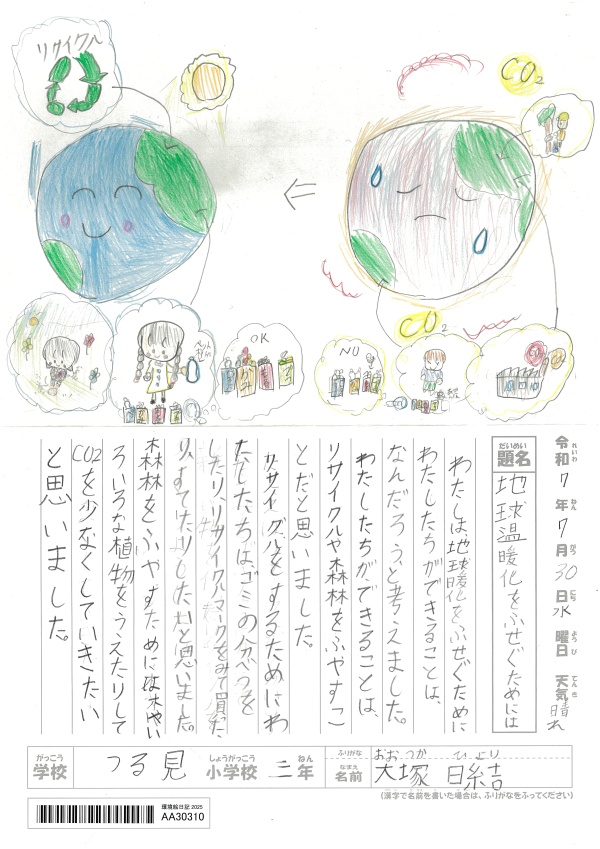 リサイクル
CO₂
OK
NO
CO₂
令和7年7月30日水曜日 天気晴れ
れいわ ねん がつ にち ようび てんき
だいめい
題名 地球温暖化をふせぐためには
わたしは、地球暖化をふせぐために
わたしたちができることは、
なんだろう、と考えました。
わたしたちが、できることは、
リサイクルや森林をふやすこ
とだと思いました。
リサイクルをするためにわ
たしたちは、ゴミの分べつを
したり、リサイクルマークをみて買った
り、すてたりしたいと思いました。
森林をふやすためには木やい
ろいろな植物をうえたりして
CO2を少なくしていきたい
と思いました。
がっこう しょうがっこう ねん ふりがな おおつか ひより
学校 つる見 小学校 三年 なまえ 名前 大塚 日結
(漢字で名前を書いた場合は、ふりがなをふってください)
環境絵日記 2025
AA30310